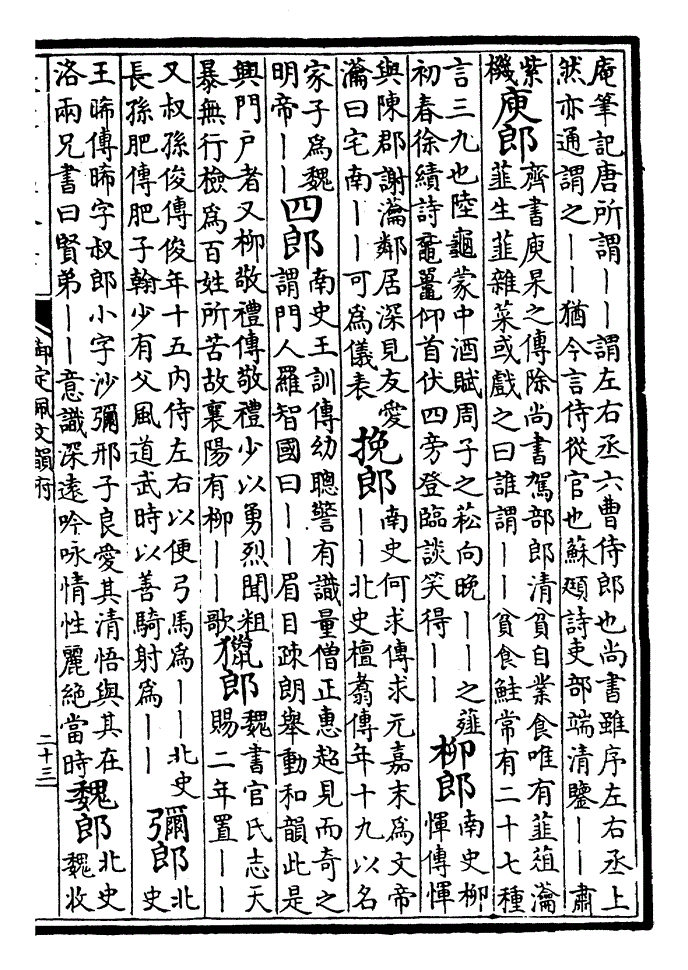 庵筆記唐所謂――謂左右丞六曹侍郎也尚書雖序左右丞上
然亦通謂之――猶今言侍從官也蘇頲詩吏部端清鑒――肅
紫
機
庾郎
齊書庾杲之傳除尚書駕部郎清貧自業食唯有韮葅瀹
韮生韮雜菜或戲之曰誰謂――貧食鮭常有二十七種
言三九也陸龜蒙中酒賦周子之菘向晚――之薤
初春徐績詩黿鼉仰首伏四旁登臨談笑得――
柳郎
南史柳
惲傳惲
與陳郡謝瀹鄰居深見友愛
瀹曰宅南――可為儀表
挽郎
南史何求傳求元嘉末為文帝
――北史檀翥傳年十九以名
家子為魏
明帝――
四郎
南史王訓傳幼聰警有識量僧正惠超見而奇之
謂門人羅智國曰――眉目疎朗舉動和韻此是
興門户者又柳敬禮傳敬禮少以勇烈聞粗
暴無行檢為百姓所苦故襄陽有柳――歌
獵郎
魏書官氏志天
賜二年置――
又叔孫俊傳俊年十五内侍左右以便弓馬為――北史
長孫肥傳肥子翰少有父風道武時以善騎射為――
彌郎
北
史
王晞傳晞字叔郎小字沙彌邢子良愛其清悟與其在
洛兩兄書曰賢弟――意識深遠吟咏情性麗絶當時
魏郎
北史
魏收
御定佩文韻府
二十三